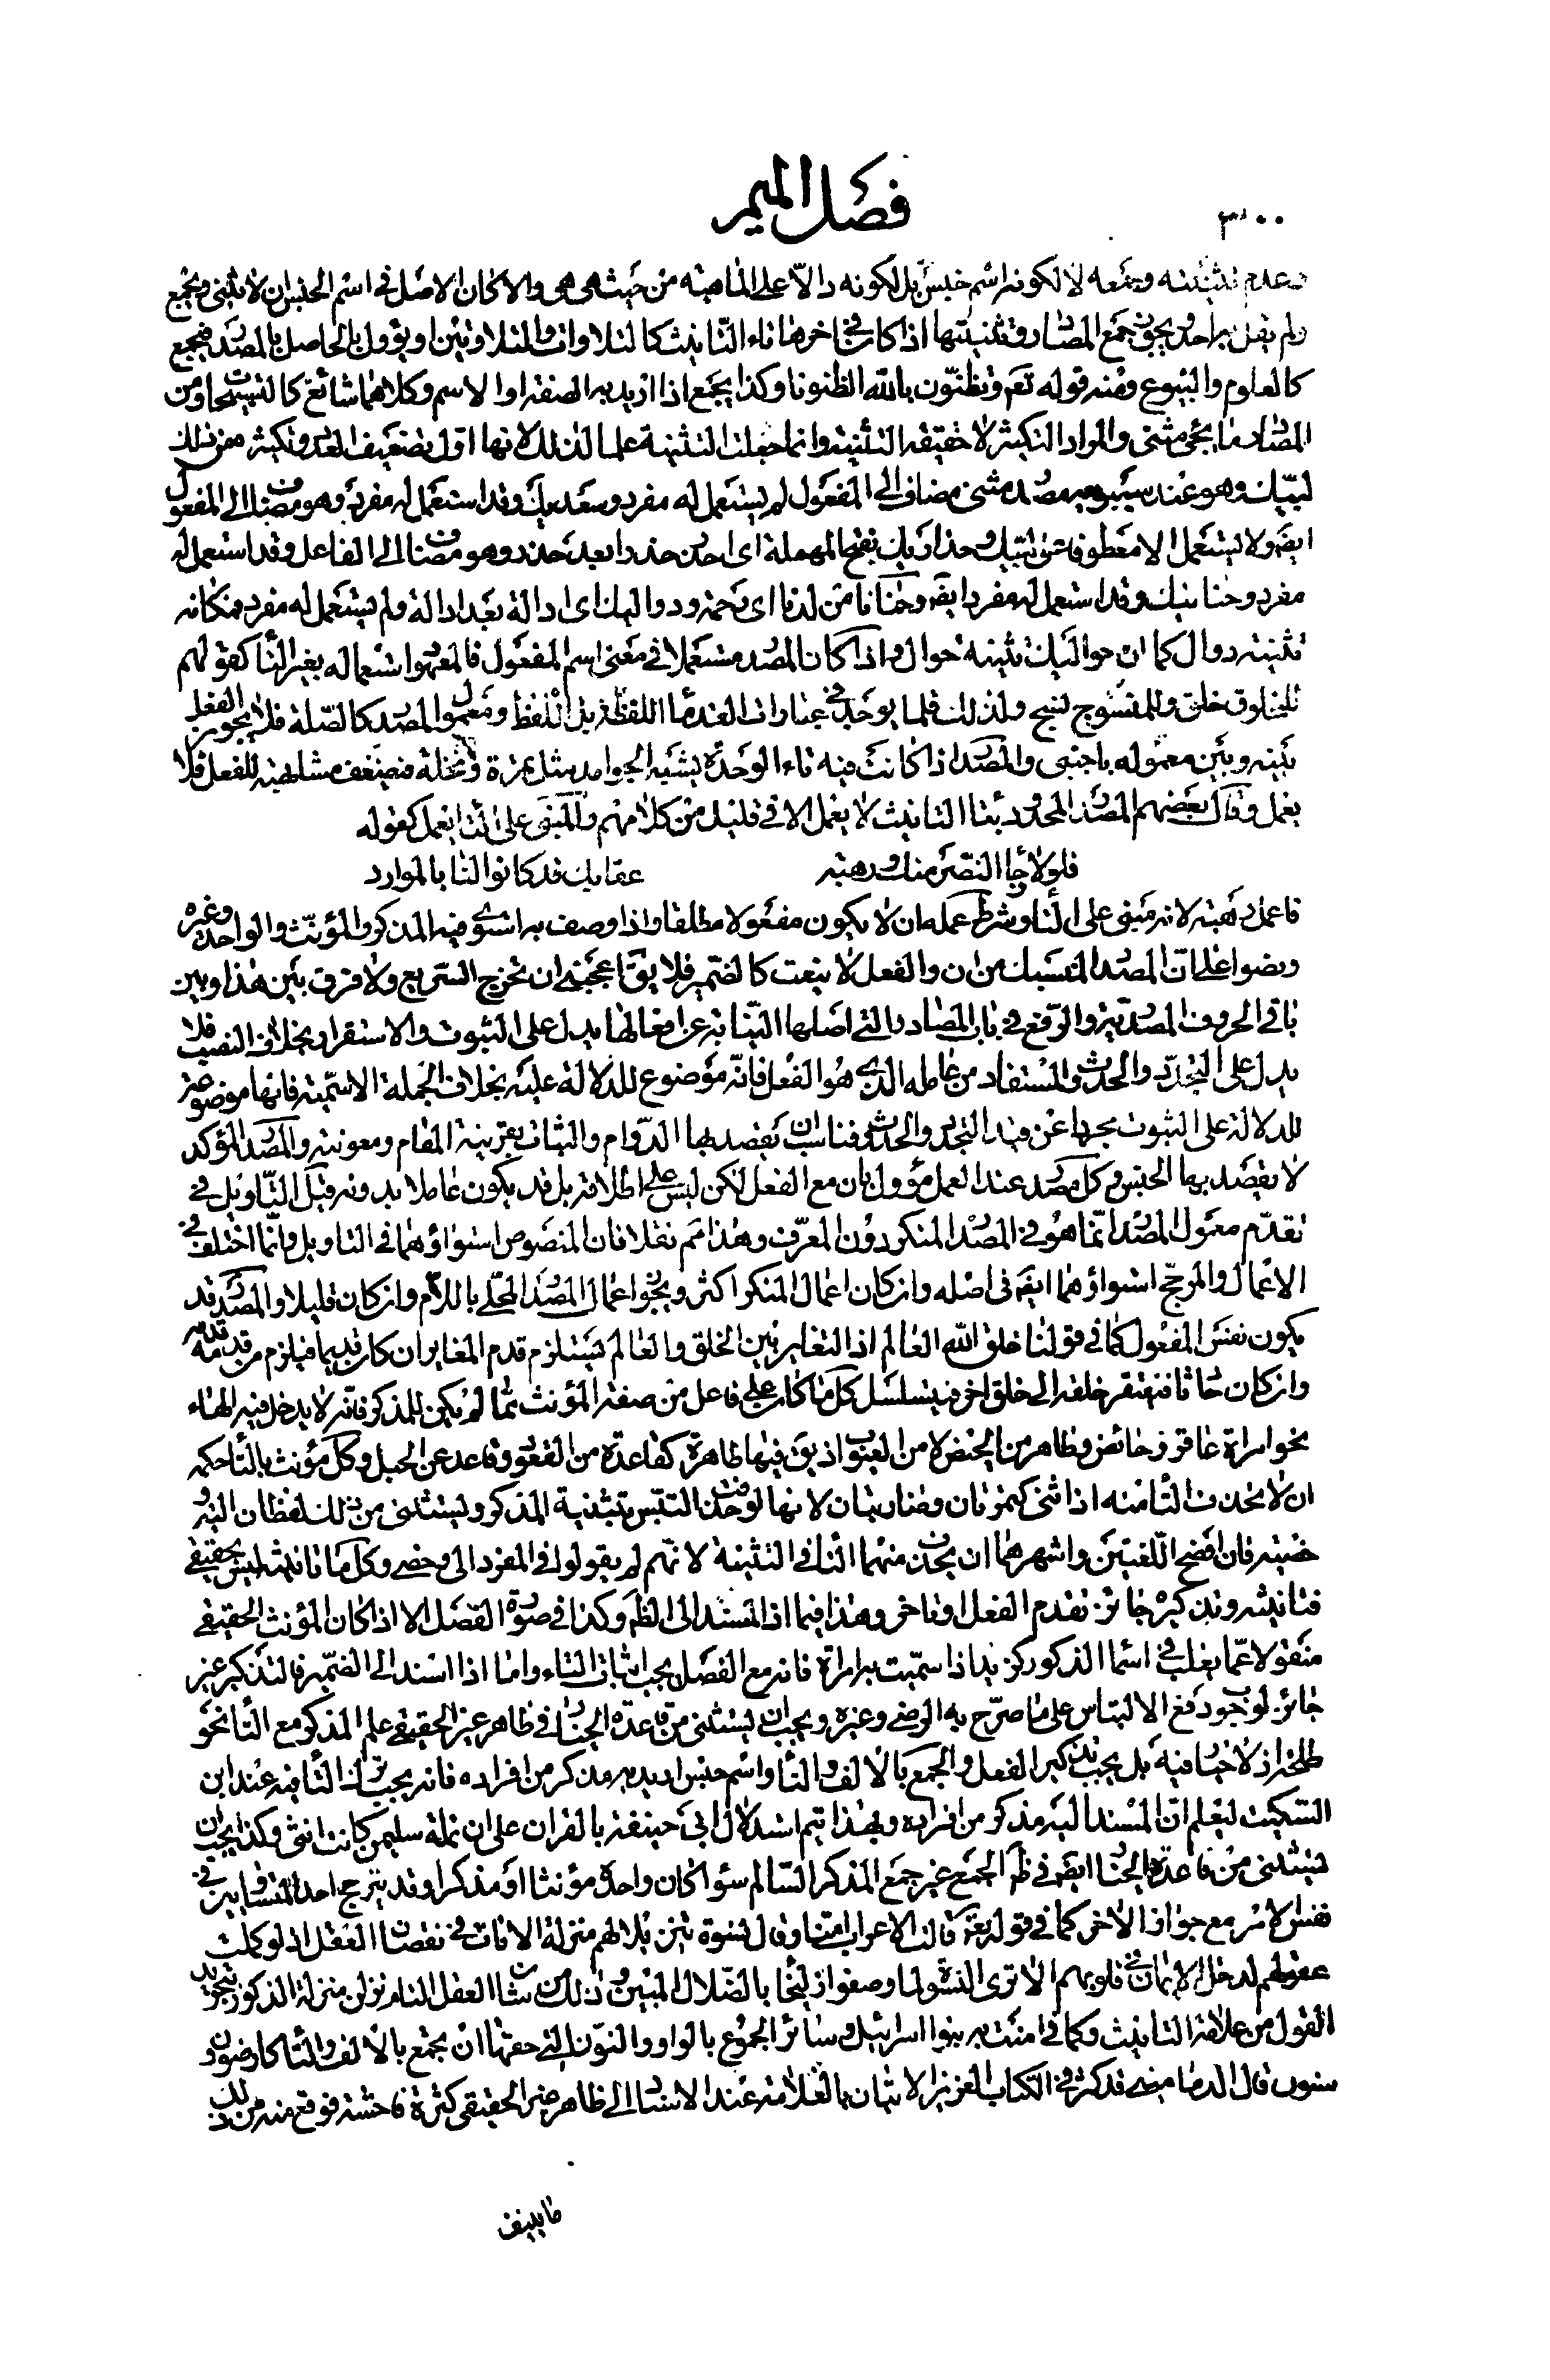 ٣٠٠ فصل الميم
وعدم تثنيته وجمعه لا لكونه اسم جنس بل لكونه دالا على الماهية من حيث هي هي والا كان الاصل في اسم الجنس ان لا يثنى ويجمع
ولم يقل به احد ويجوز جمع المصادر وتثنيتها اذا كان في اخرها تاء التانيث كالتلاوات والتلاوتين او يؤول بالحاصل بالمصدر فيجمع
كالعلوم والبيوع ومنه قوله تعم وتظنون بالله الظنونا وكذا يجمع اذا اريد به الصفة او الاسم وكلاهما شائع كالتسبيحات ومن
المصادر ما يجئ مثنى والمراد التكثير لا حقيقة التثنية وانما جعلت التثنية علما لذلك لانها اول تضعيف العدد وتكثيره فمن ذلك
لبيك وهو عند سيبويه مصدر مثنى مضاف الى المفعول لم يستعمل له مفرد وسعديك وقد استعمل له مفرد وهو مضاف الى المفعول
ايضه ولا يستعمل الا معطوفا على لبيك وحذاريك بفتح المهملة اى احذر حذرا بعد حذر وهو مضاف الى الفاعل وقد استعمل له
مفرد وحنانيك وقد استعمل له مفرد ايضه وحنانا من لدنا اى رحمة ودواليك اى ادالة بعد ادالة ولم يستعمل له مفرد فمكانه
تثنيته دوال كما ان حواليك تثنية حوال واذا كان المصدر مستعملا في معنى اسم المفعول فالمعهود استعماله بغير التا كقولهم
للمخلوق خلق وللمنسوج نسج ولذلك قلما يوجد في عبارات القدما اللفظة بل اللفظ ومعمول المصدر كالصلة فلا يجوز الفصل
بينه وبين معموله باجنبى والمصدر اذا كانت فيه تاء الوحدة يشبه الجوامد مثل تمرة ونخلة فيضعف مشابهته للفعل فلا
يعمل وقال بعضهم المصدر المحدود بتا التانيث لا يعمل الا في قليل من كلامهم والمبنى على التا يعمل كقوله
فلولا رجا النصر منك ورهبة عقابك قد كانوا لنا بالموارد
فاعمل رهبة لانه مبنى على التا وشرط عمله ان لا يكون مفعولا مطلقا واذا وصف به استوى فيه المذكر والمؤنث والواحد وغيره
ونصوا على ان المصدر المنسبك من ان والفعل لا ينعت كالضمير فلا يق اعجبنى ان تخرج السريع ولا فرق بين هذا وبين
باقي الحروف المصدرية والرفع في باب المصادر التى اصلها النيابة عن افعالها يدل على الثبوت والاستقرار بخلاف النصب فلا
يدل على التجدد والحدوث والمستفاد من عامله الذى هو الفعل فانه موضوع للدلالة عليه بخلاف الجملة الاسمية فانها موضوعة
للدلالة على الثبوت مجردا عن قيد التجدد والحدوث فناسب ان يقصد بها الدوام والثبات بقرينة المقام ومعونته والمصدر المؤكد
لا يقصد بها الجنس وكل مصدر عند العمل مؤول بان مع الفعل لكن ليس على اطلاقه بل قد يكون عاملا بدونه قبل التاويل في
تقدم معمول المصدر انما هو في المصدر المنكر دون المعرف وهذا مم نقلا فان المنصوص استواؤهما في التاويل وانما اختلف في
الاعمال والمرجح استواؤهما ايضه في اصله وان كان اعمال المنكر اكثر ويجوز اعمال المصدر المحلى باللام وان كان قليلا والمصدر قد
يكون نفس المفعول كما في قولنا خلق الله العالم اذ التغاير بين الخلق والعالم يستلزم قدم المغاير ان كان قديما فيلزم من قدمه قدمه
وان كان حادثا فيفتقر خلقه الى خلق اخر فيتسلسل كل ما كان على فاعل من صفة المؤنث مما لم يكن للمذكر فانه لا يدخل فيه الهاء
نحو امراة عاقر وحائض وطاهر من الحيض لا من العيوب اذ يق فيها طاهرة كقاعدة من القعود وقاعد عن الحبل وكل مؤنث بالتا حكمه
ان لا يحذف التا منه اذا ثنى كتمرتان وضاربتان لانها لو حذفت التبس بتثنية المذكر ويستثنى من ذلك لفظان الية و
خصية فان افصح اللغتين واشهرهما ان يحذف منهما التا في التثنية لانهم لم يقولوا في المفرد الى وخصى وكل ما تانيثه ليس بحقيقي
فتانيثه وتذكيره جائز تقدم الفعل او تاخر وهذا فيما اذا اسند الى الظم وكذا في صورة الفصل الا اذا كان المؤنث الحقيقي
منقولا عما يغلب في اسما الذكور كزيد اذا سميت به امراة فانه مع الفصل يجب اثبات التاء واما اذا اسند الى الضمير فالتذكير غير
جائز لوجوب دفع الالتباس على ما صرح به الرضى وغيره ويجب ان يستثنى من قاعدة الخيار في ظاهر غير الحقيقي علم المذكر مع التا نحو
طلحة اذ لا خيار فيه بل يجب تذكير الفعل والجمع بالالف والتا واسم جنس اريد به مذكر من افراده فانه يجب ترك التا فيه عند ابن
السكيت ليعلم ان المسند اليه مذكر من افراده وبهذا تيم استدلال ابى حنيفة بالقران على ان نملة سليمن كانت انثى وكذا يجب ان
يستثنى من قاعدة الخيار ايضه في ظم الجمع غير جمع المذكر السالم سواء كان واحده مؤنثا او مذكرا وقد يترجح احد المتساويين في
نفس الامر مع جواز الاخر كما في قوله تعم قالت الاعراب امنا وقال نسوة تنزيلا لهم منزلة الاناث في نقصان العقل اذ لو كملت
عقولهم لدخل الايمان في قلوبهم الا ترى النسوة لما وصفوا زليخا بالضلال المبين وذلك من شان العقل التام نزلن منزلة الذكور بتجريد
القول من علامة التانيث وكما في امنت به بنوا اسرائيل وسائر الجموع بالواو والنون التى حقها ان يجمع بالالف والتا كارضون و
سنون قال الدمامينى قد كثر في الكتاب العزيز الاتيان بالعلامة عند الاسناد الى ظاهر غير الحقيقي كثرة فاحشة فوقع منه من ذلك
ما ينيف